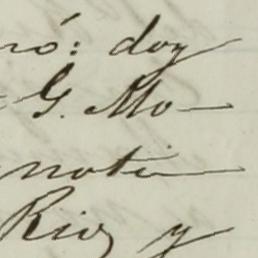 ró: doy
G. Mo-
noti-
Rios y